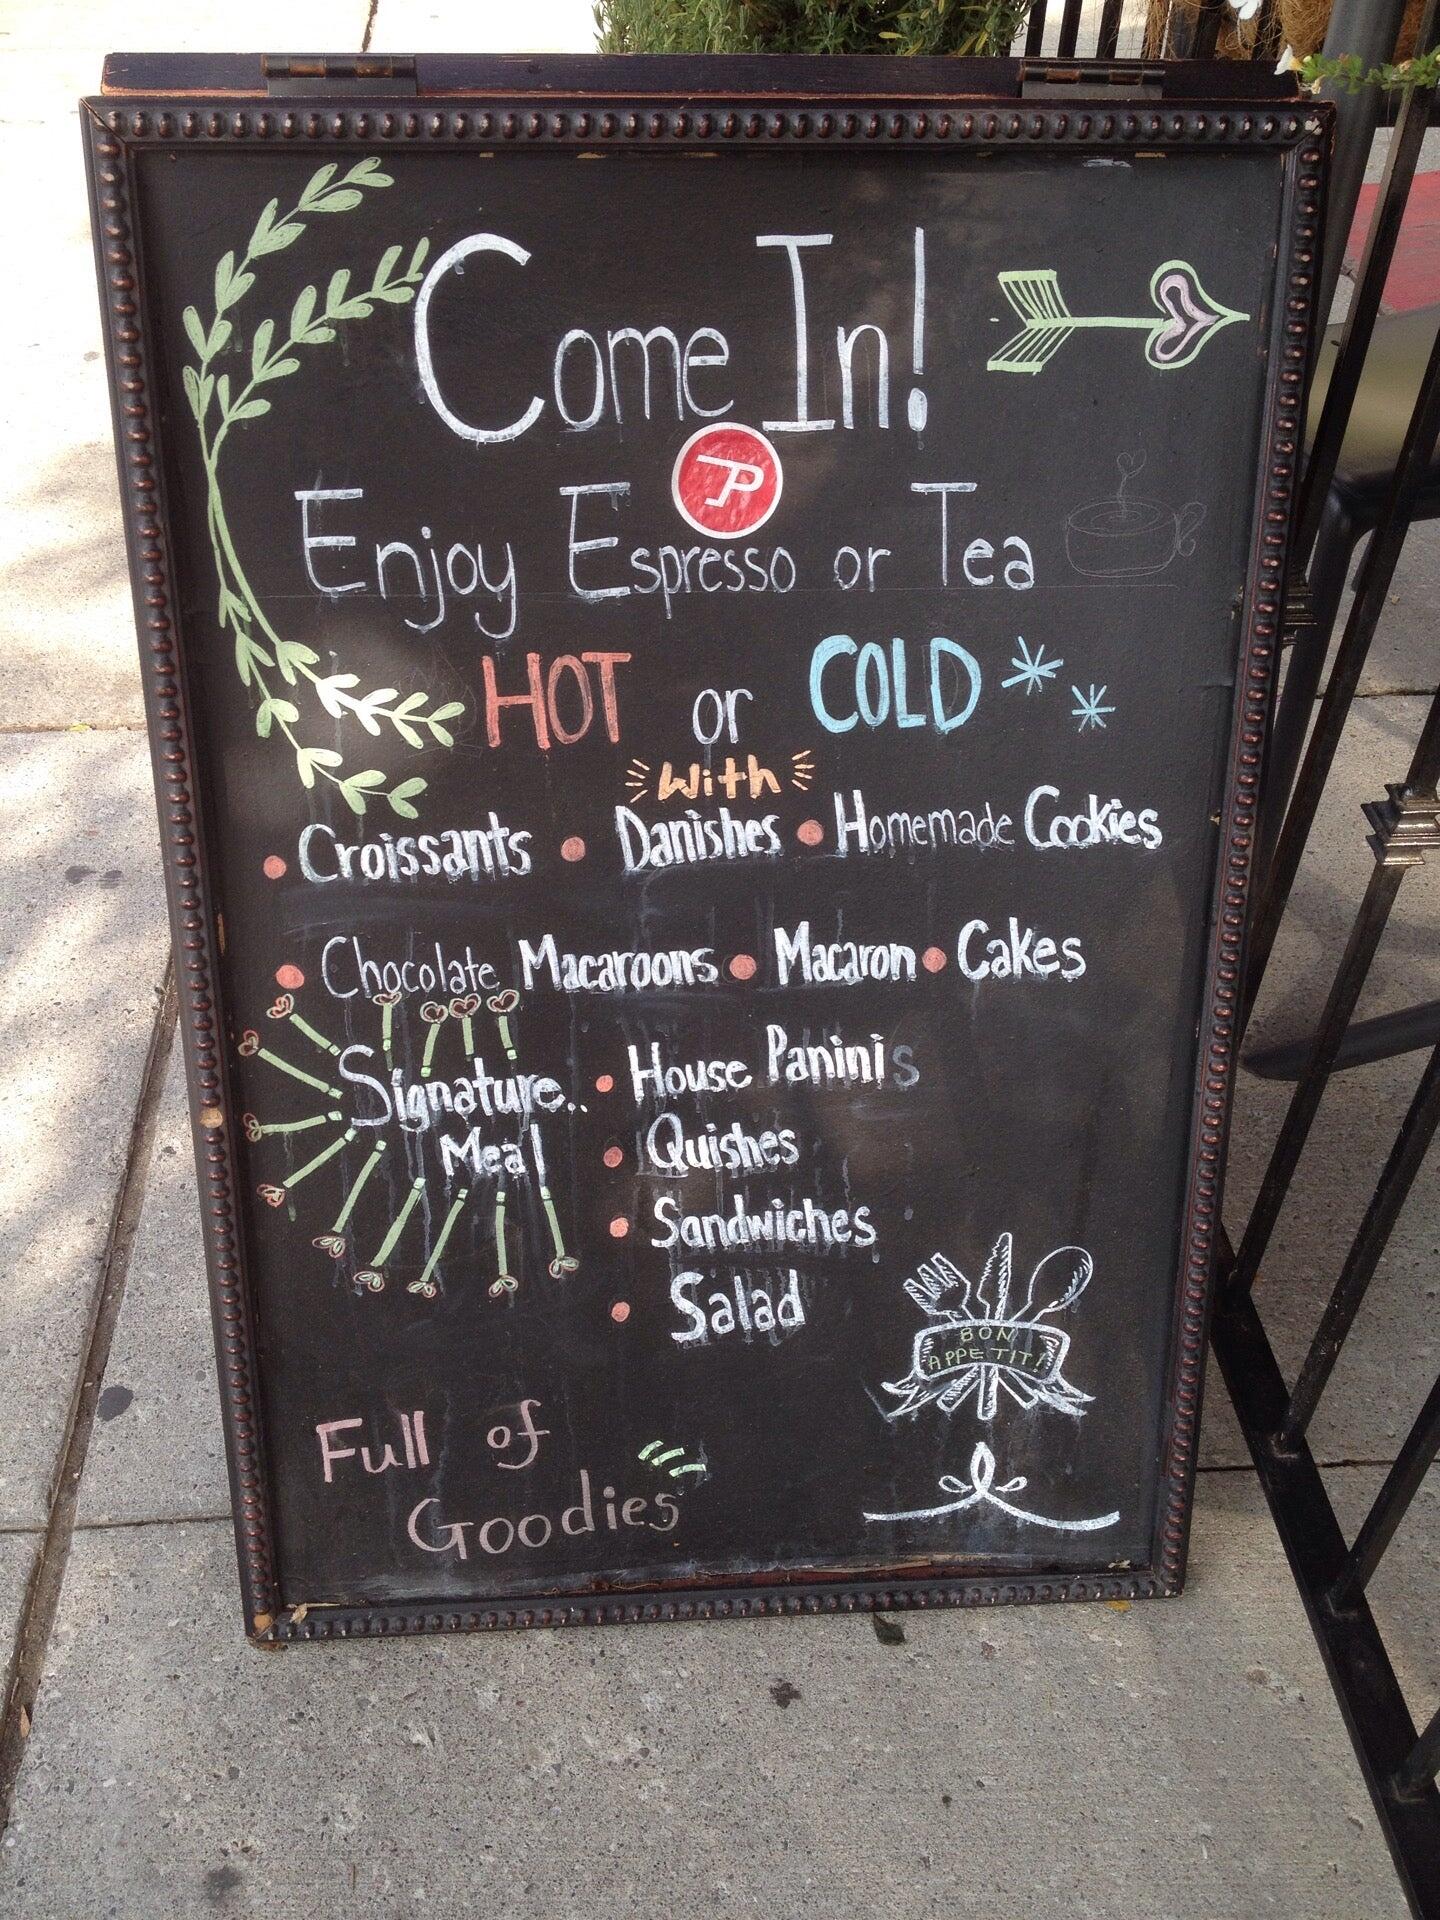 Come In!
Enjoy Espresso or Tea
HOT or COLD
With
• Croissants • Danishes • Homemade Cookies
• Chocolate Macaroons • Macaron • Cakes
Signature.. Meal
• House Paninis
• Quishes
• Sandwiches
• Salad
BON
APPETIT!
Full of
Goodies